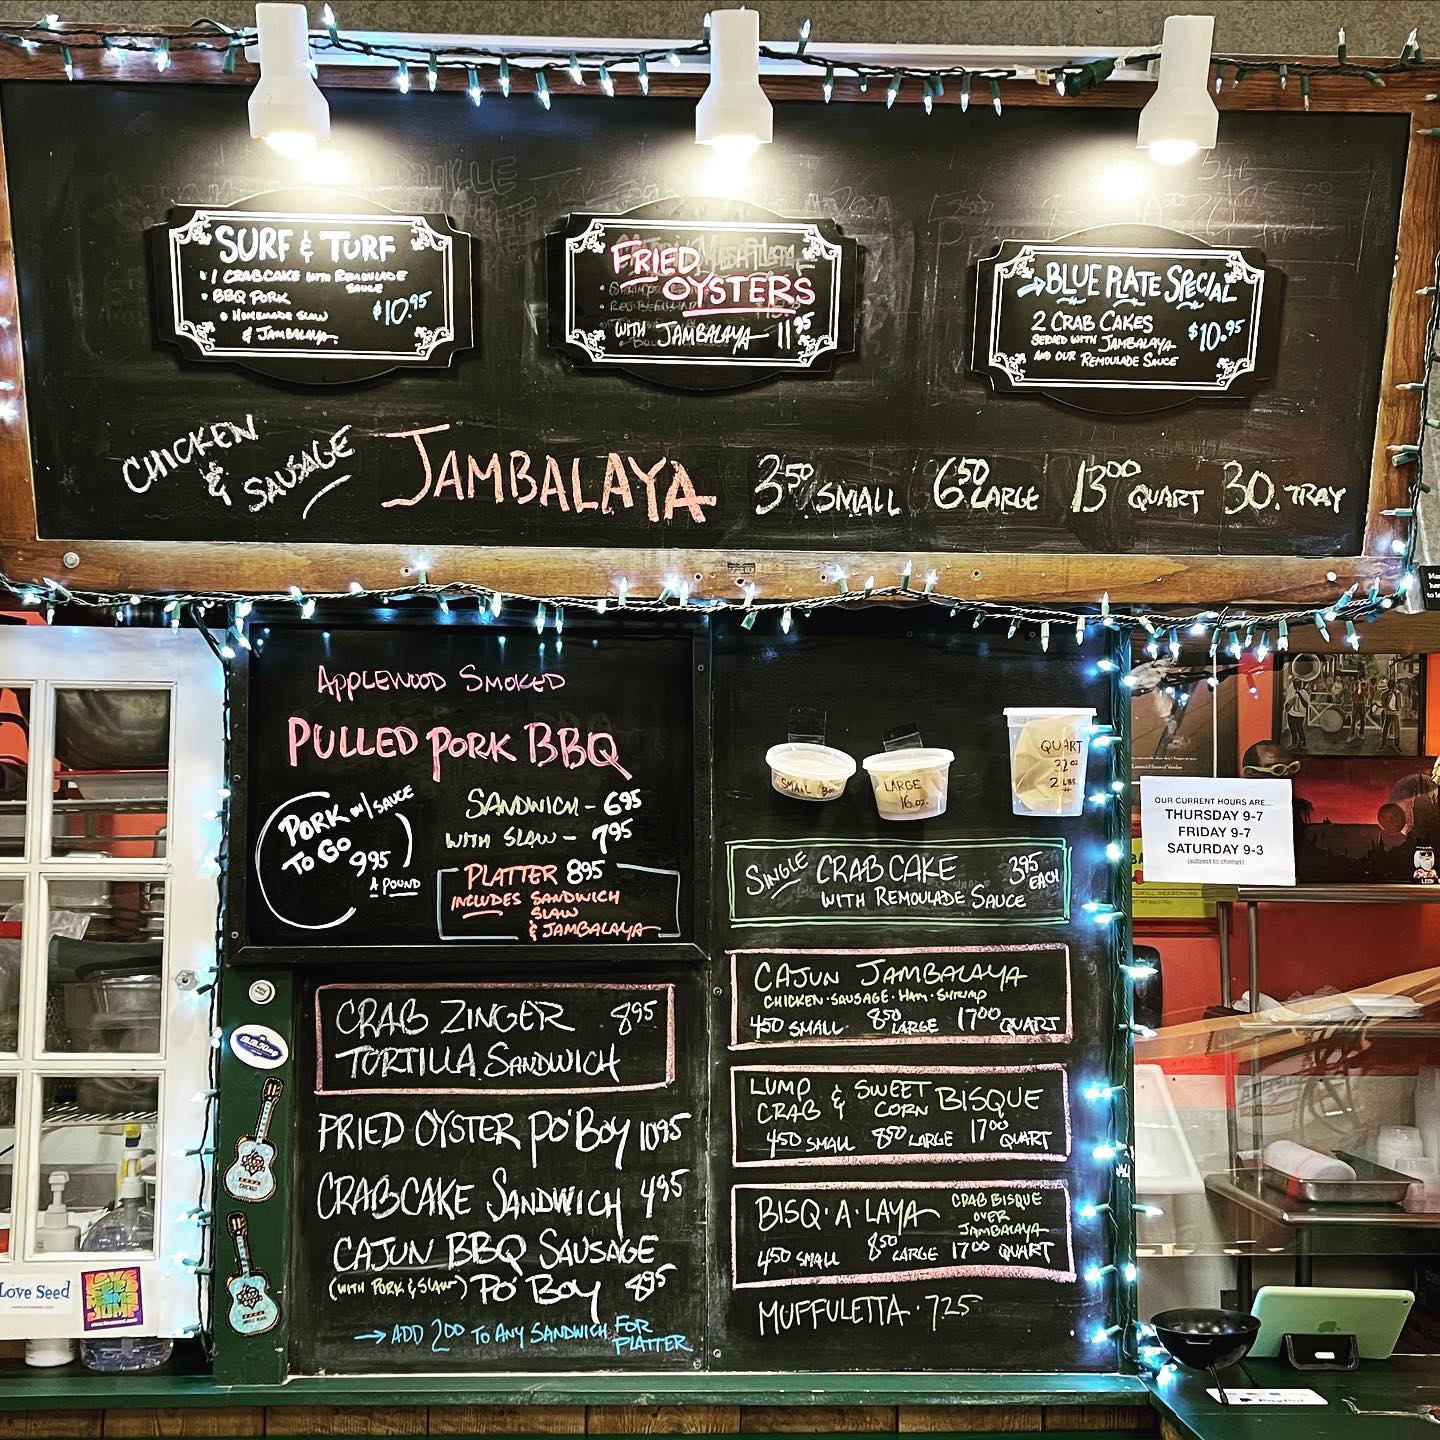 SURF & TURF
1 CRABCAKE WITH REMOULADE
SAUCE
BBQ PORK
$10.95
HOMEMADE SLAW
& JAMBALAYA
FRIED
OYSTERS
WITH JAMBALAYA 11.95
BLUE PLATE SPECIAL
2 CRAB CAKES
SERVED WITH JAMBALAYA
AND OUR REMOULADE SAUCE
$10.95
CHICKEN
& SAUSAGE
JAMBALAYA
3.50 SMALL 6.50 LARGE 13.00 QUART 30. TRAY
APPLEWOOD SMOKED
PULLED PORK BBQ
PORK W/ SAUCE
TO GO
9.95
A POUND
SANDWICH - 6.95
WITH SLAW - 7.95
PLATTER 8.95
INCLUDES SANDWICH
SLAW
& JAMBALAYA
CRAB ZINGER 8.95
TORTILLA SANDWICH
FRIED OYSTER PO'BOY 10.95
CRABCAKE SANDWICH 4.95
CAJUN BBQ SAUSAGE
(WITH PORK & SLAW) PO'BOY 8.95
→ ADD 2.00 TO ANY SANDWICH FOR
PLATTER
SMALL 8oz.
LARGE
16 oz.
QUART
32 oz.
2 LBS.
SINGLE CRAB CAKE 3.95
EACH
WITH REMOULADE SAUCE
CAJUN JAMBALAYA
CHICKEN · SAUSAGE · HAM · SHRIMP
4.50 SMALL 8.50 LARGE 17.00 QUART
LUMP & SWEET
CRAB CORN BISQUE
4.50 SMALL 8.50 LARGE 17.00 QUART
BISQ·A·LAYA CRAB BISQUE
OVER
JAMBALAYA
4.50 SMALL 8.50 LARGE 17.00 QUART
MUFFULETTA · 7.25
OUR CURRENT HOURS ARE...
THURSDAY 9-7
FRIDAY 9-7
SATURDAY 9-3
(subject to change)
GRILL SEASONING
B.B. King
Love Seed
LOVE
SEED
MAMA
JUMP
PayPal